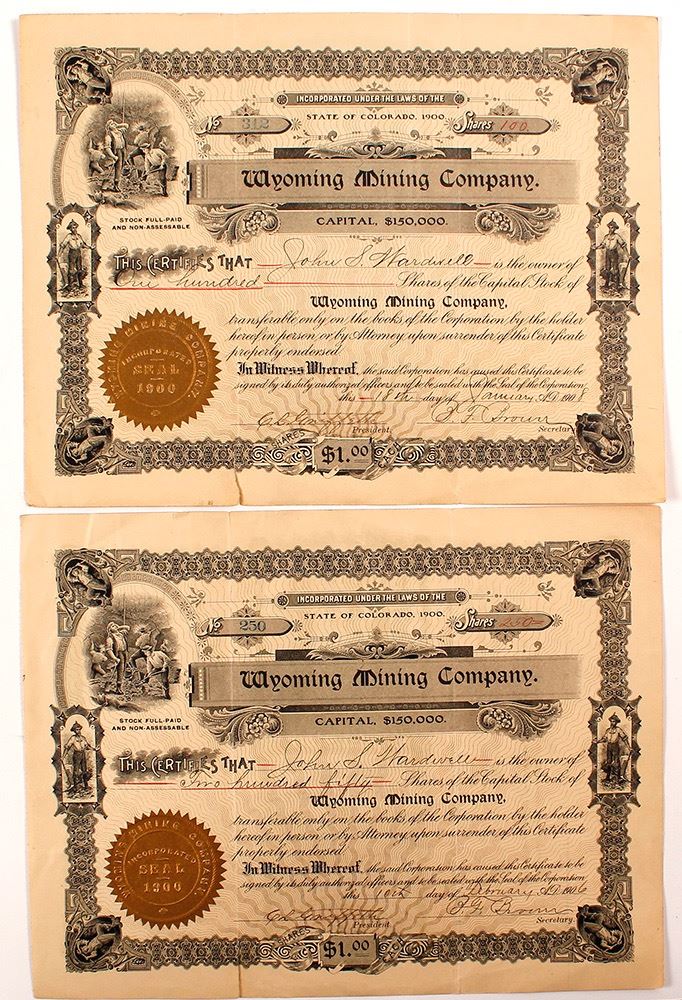 INCORPORATED UNDER THE LAWS OF THE
STATE OF COLORADO, 1900.
No 312 Shares 100.
Wyoming Mining Company.
STOCK FULL-PAID
AND NON-ASSESSABLE
CAPITAL, $150,000.
THIS CERTIFIES THAT John S. Hardwell is the owner of
One hundred Shares of the Capital Stock of
Wyoming Mining Company,
transferable only on the books of the Corporation by the holder
hereof in person or by Attorney upon surrender of this Certificate
properly endorsed.
In Witness Whereof, the said Corporation has caused this Certificate to be
signed by its duly authorized officers and to be sealed with the Seal of the Corporation,
this 18th day of January A.D. 1908
Brown
President. Secretary
WYOMING MINING COMPANY.
INCORPORATED
SEAL
1900
SHARES $1.00
INCORPORATED UNDER THE LAWS OF THE
STATE OF COLORADO, 1900.
No 250 Shares 250
Wyoming Mining Company.
STOCK FULL-PAID
AND NON-ASSESSABLE
CAPITAL, $150,000.
THIS CERTIFIES THAT John S. Hardwell is the owner of
Two hundred fifty Shares of the Capital Stock of
Wyoming Mining Company,
transferable only on the books of the Corporation by the holder
hereof in person or by Attorney upon surrender of this Certificate
properly endorsed.
In Witness Whereof, the said Corporation has caused this Certificate to be
signed by its duly authorized officers and to be sealed with the Seal of the Corporation
this 10th day of February A.D. 1906
Brown
President. Secretary.
WYOMING MINING COMPANY
INCORPORATED
SEAL
1900
SHARES $1.00